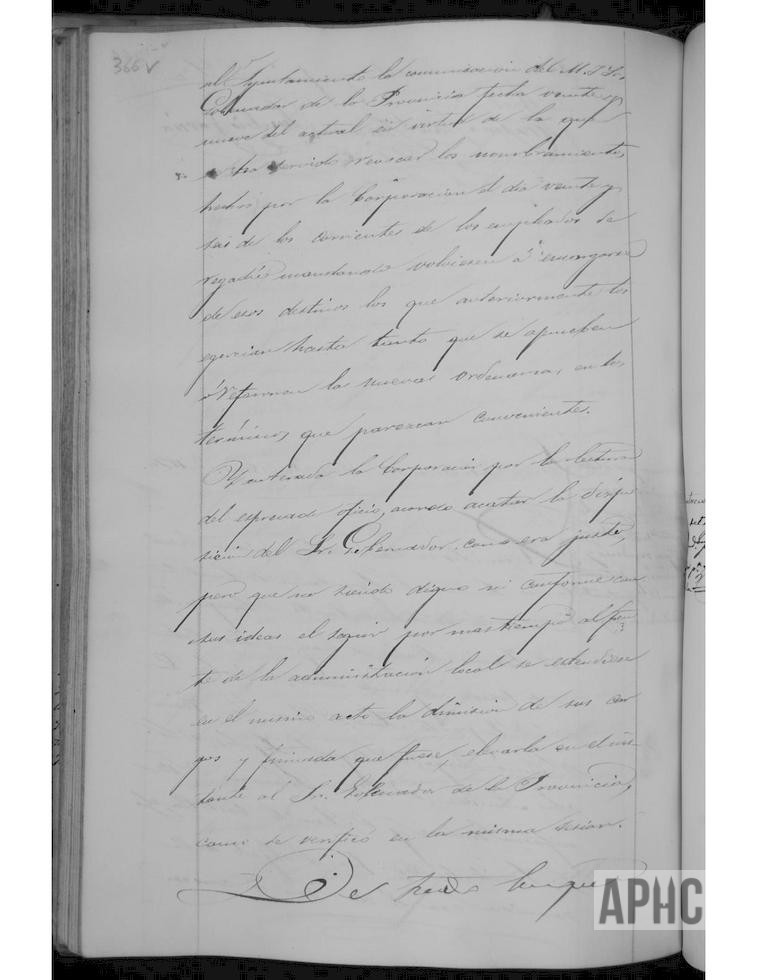 366 v
al Ayuntamiento la comunicacion del M. I. Sr.
Gobernador de la Provincia fecha veinte y
nueve del actual en virtud de la que
se ha servido revocar los nombramientos
hechos por la Corporacion el dia veinte y
seis de los corrientes de los empleados de
regadio mandando volviesen á encargarse
de esos destinos los que anteriormente los
egercian hasta tanto que se aprueben
ó reforman las nuevas ordenanzas, en los
términos que parezcan conveniente.
Y enterada la Corporacion por la lectura
del espresado oficio, acordó acatar la dispo
sicion del Sr. Gobernador como era justo,
pero que no siendo digno ni conforme con
sus ideas el seguir por mas tiempo al fren
te de la administracion local se estendiese
en el mismo acto la dimision de sus car
gos y firmada que fuese, elevarla en el ins-
tante al Sr. Gobernador de la Provincia,
como se verificó en la misma sesion.
De todo lo que
APHC